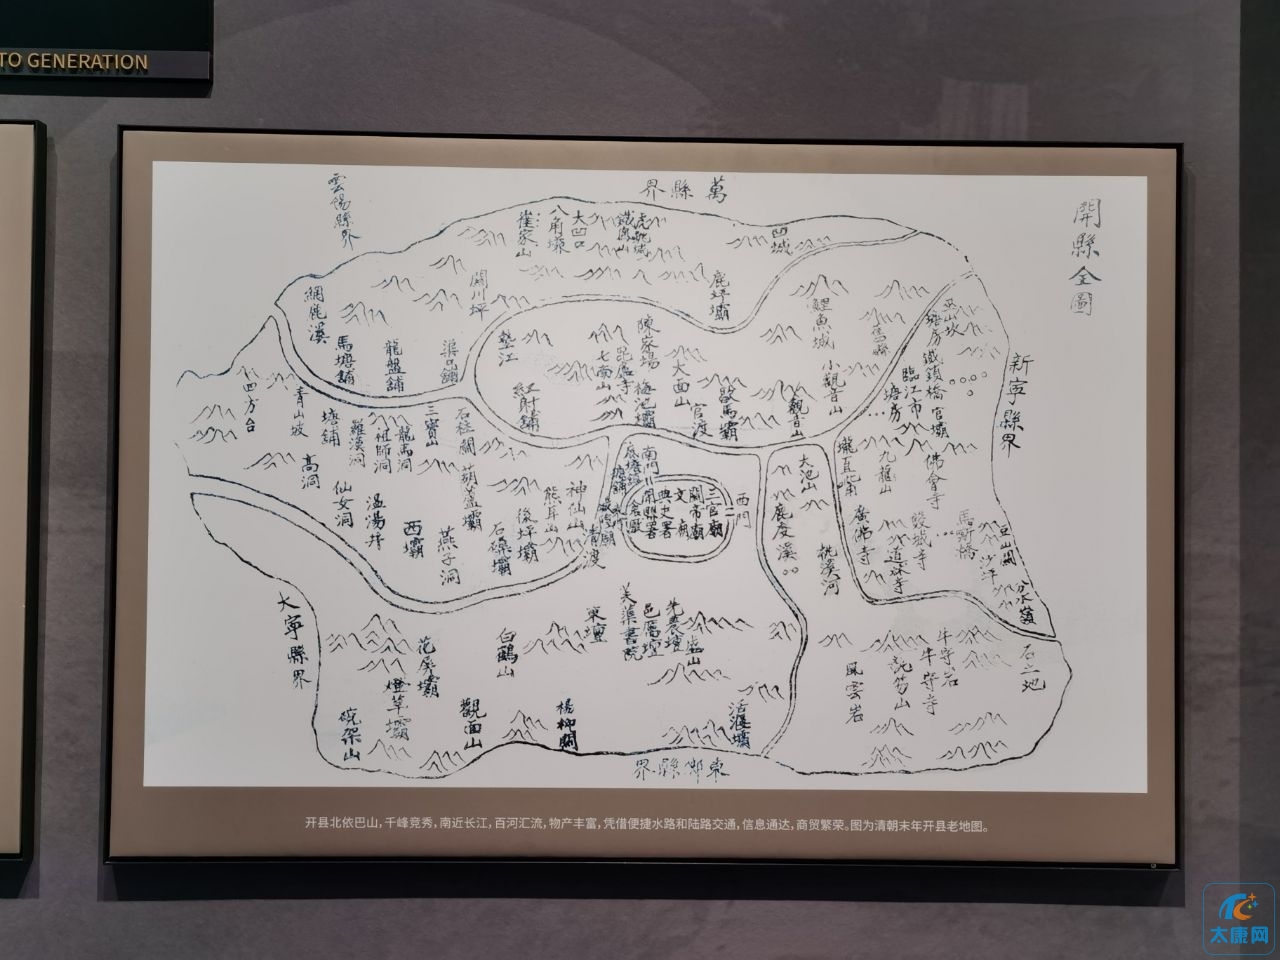 TO GENERATION
開縣全圖
萬縣界
雲陽縣界
新寧縣界
大寧縣界
東鄉縣界
崔家山
八角壕
大凹口
凹城
鹿坪壩
開川坪
馬塘鋪
龍盤鋪
墊江
陳家場
七南山
大面山
官渡
鯉魚城
小觀音山
觀音山
鐵鎖橋
臨江市
塘房
官壩
塘房
四方台
青山坡
塘鋪
羅漢洞
祖師洞
龍馬洞
三寶山
石柱關
葫蘆壩
高洞
仙女洞
溫湯井
西壩
燕子洞
後坪壩
熊耳山
神仙山
清渡
南門
開縣署
典史署
文廟
關帝廟
三官廟
西門
大池山
鹿度溪
桃溪河
九龍山
佛會寺
廣佛寺
馬斯橋
豆山關
沙坪
分水嶺
東壇
芙蕖書院
邑厲壇
先農壇
盛山
白鶴山
花屏壩
燈草壩
硯架山
觀面山
楊柳關
活堰壩
風雲岩
牛守岩
牛守寺
石二地
开县北依巴山，千峰竞秀，南近长江，百河汇流，物产丰富，凭借便捷水路和陆路交通，信息通达，商贸繁荣。图为清朝末年开县老地图。
太康网